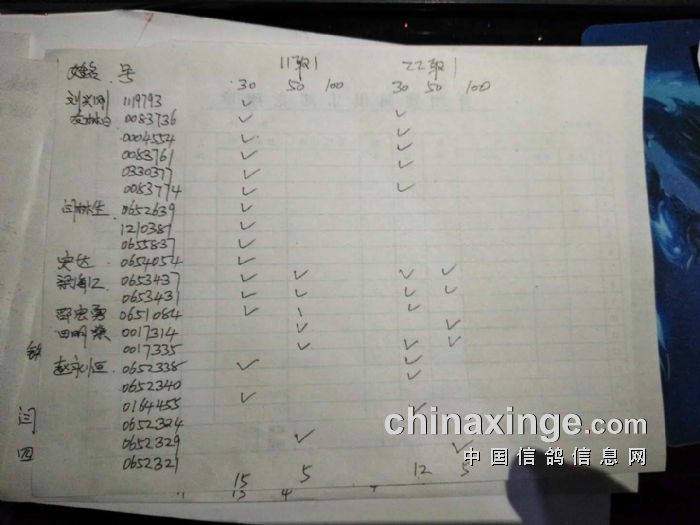 姓名 号 11取1 22取1
30 50 100 30 50 100
刘 刚 1119793 ✓
0083736 ✓ ✓
0004554 ✓ ✓
0083761 ✓ ✓
0330377 ✓ ✓
0083774 ✓ ✓
闫林生 0652639 ✓
1210381 ✓
0655837 ✓
安达 0654054 ✓
梁海江 0653437 ✓ ✓ ✓ ✓
0653431 ✓ ✓ ✓ ✓
邵宏勇 0651084 ✓ \ ✓
田明 0017314 ✓ ✓
0017335 ✓ ✓ ✓
赵永恒 0652338 ✓ ✓
0652340 ✓
0164455 ✓
闫 0652324 ✓
四 0652329 ✓
0652321 ✓
15 5 12 5
15 4
chinaxinge.com
中国信鸽信息网